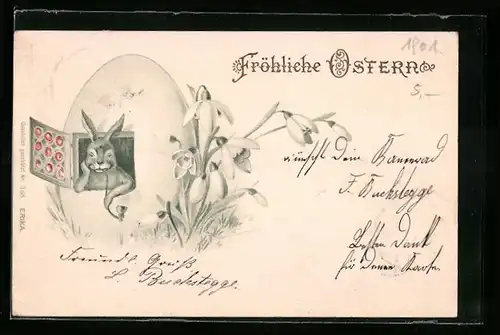 1901.
Fröhliche Ostern
5,–
wünscht Dein Kamerad
F. Buchstegge
Besten Dank
für Deine Karte.
Freundl. Gruß
L. Buchstegge.
Gesetzlich geschützt Nr. ERIKA